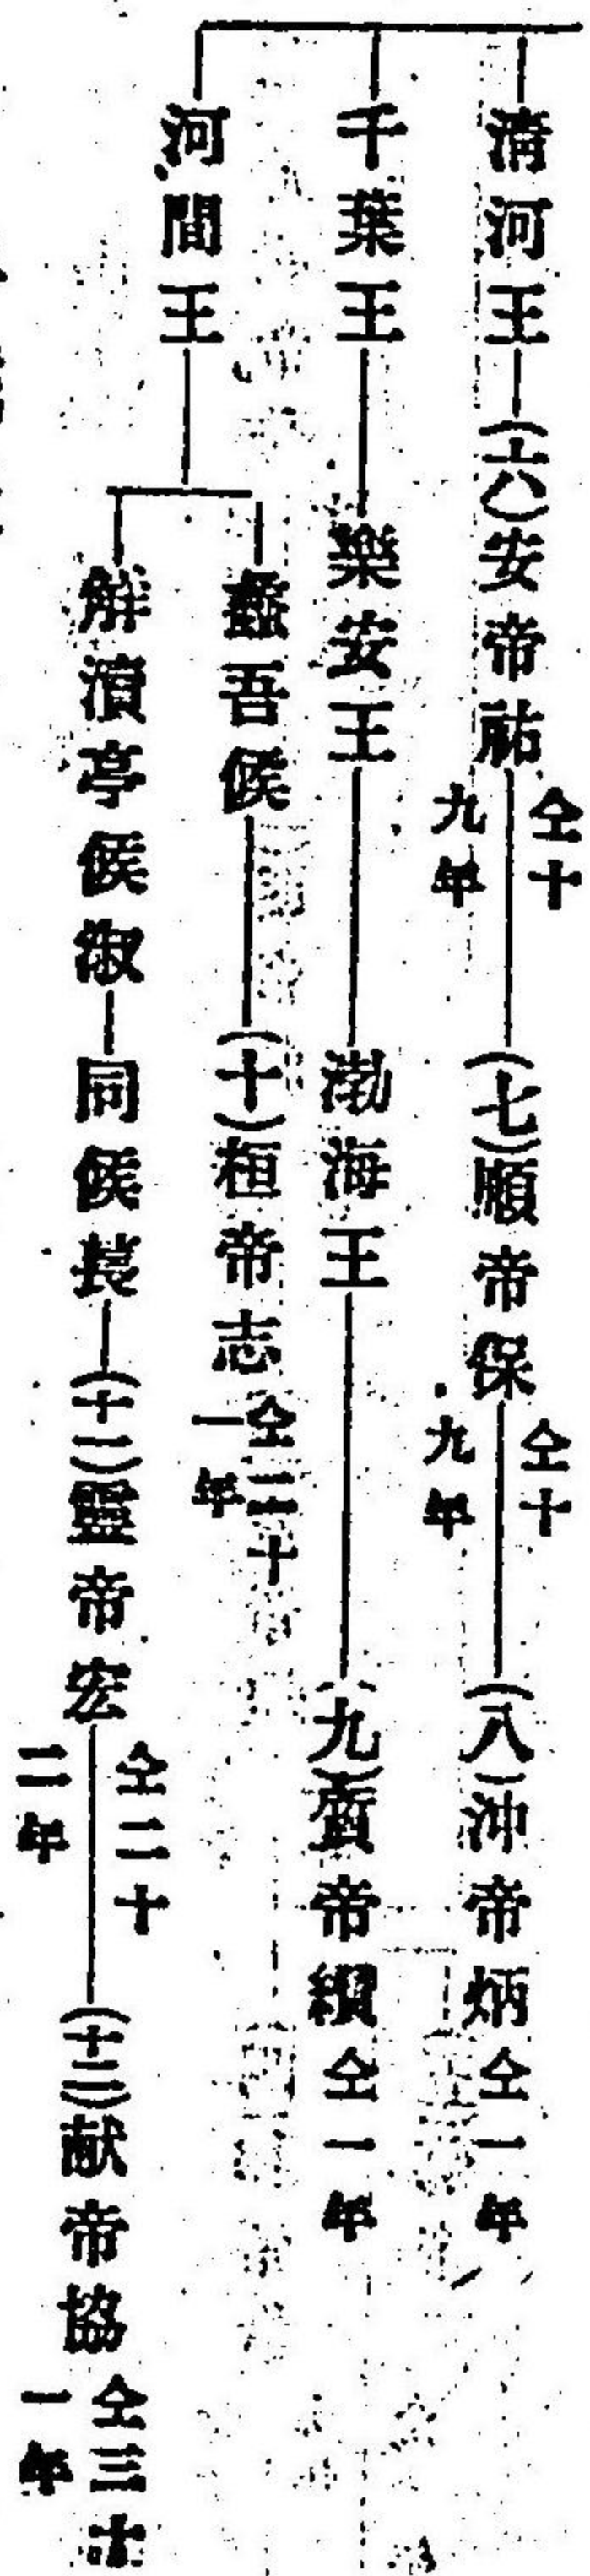 清河王―(六)安帝祜仝十九年―(七)順帝保仝十九年―(八)沖帝炳仝一年
千葉王―樂安王―渤海王―(九)質帝纘仝一年
河間王
蠡吾侯―(十)桓帝志仝二十一年
解瀆亭侯淑―同侯萇―(十一)靈帝宏仝二十二年―(十二)献帝協仝三十一年